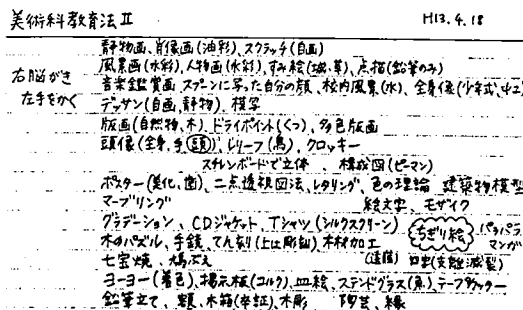 美術科教育法Ⅱ H13.4.18
静物画、肖像画(油彩)、スクラッチ(自画)
右脳がき 左手をかく
風景画(水彩)、人物画(水彩)、すみ絵(城、草)、点描(鉛筆のみ)
音楽鑑賞画 スプーンに写った自分の顔、校内風景(水)、全身像(少年式、中工)
デッサン(自画、静物)、模写
版画(自然物、木)、ドライポイント(くつ)、多色版画
頭像(全身、手、頭)、レリーフ(鳥)、クロッキー
スチレンボードで立体、構成図(ピーマン)
ポスター(美化、歯)、二点透視図法、レタリング、色の理論 建築物模型
マーブリング 絵文字、モザイク
グラデーション、CDジャケット、Tシャツ(シルクスクリーン) ちぎり絵 パラパラマンガ
木のパズル、手鏡、てん刻(上は彫刻)、木材加工
七宝焼、
ヨーヨー(着色)、掲示板(コルク)、皿絵、ステンドグラス(魚)、テープカッター
鉛筆立て、額、木箱(卒証)、木彫 陶芸、